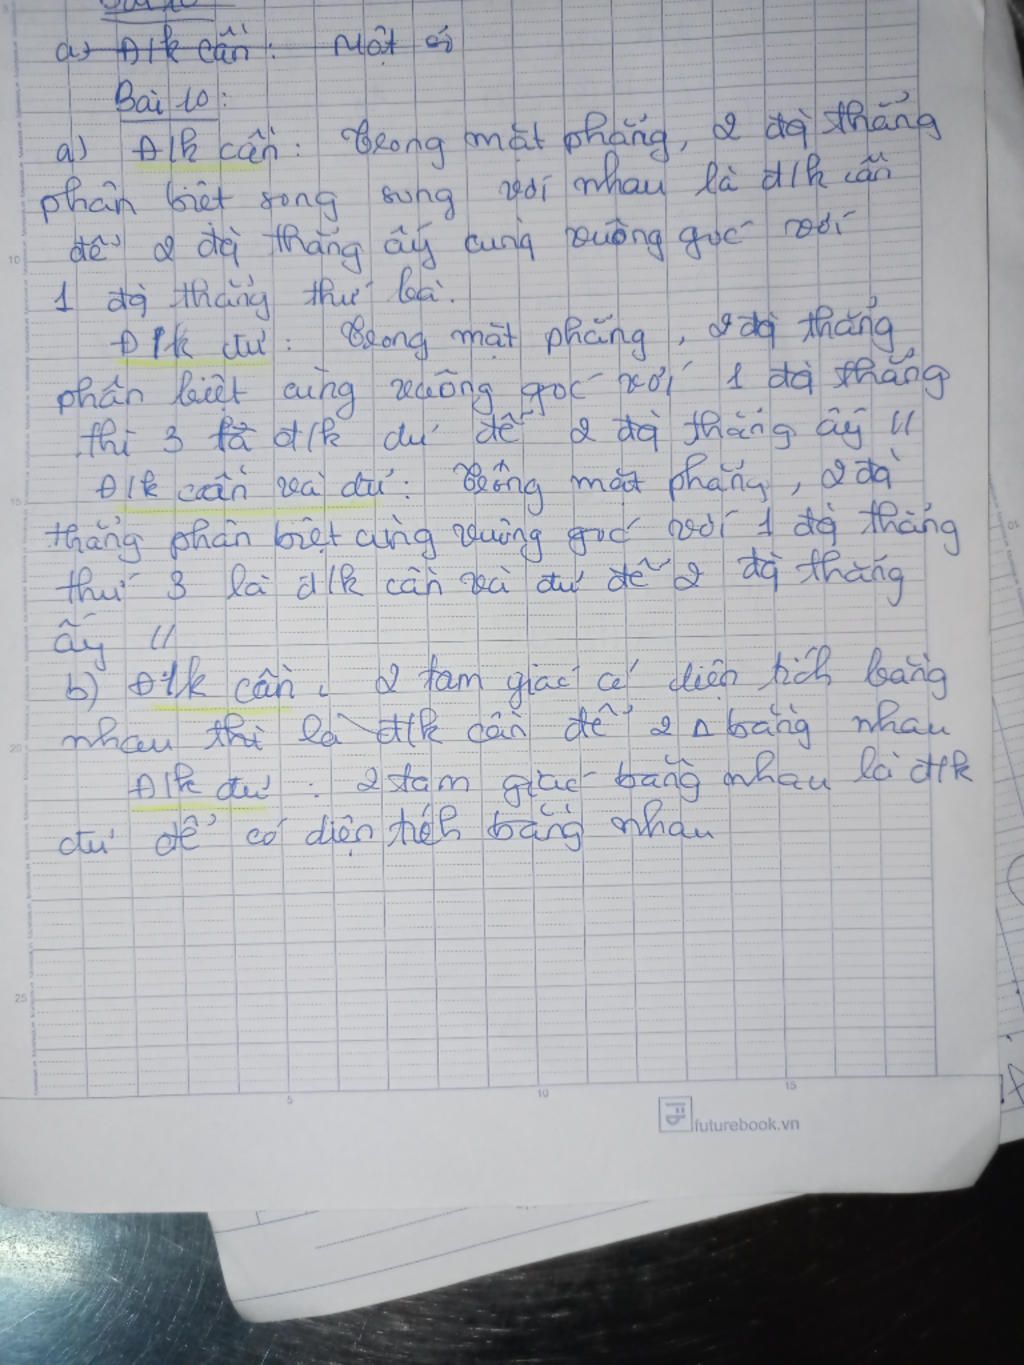 a) Đ/k cần: Một số
Bài 10:
a) Đ/k cần: Trong mặt phẳng, 2 đg thẳng
phân biệt song song với nhau là đ/k cần
để 2 đg thẳng ấy cùng vuông góc với
1 đg thẳng thứ ba.
Đ/k đủ: Trong mặt phẳng, 2 đg thẳng
phân biệt cùng vuông góc với 1 đg thẳng
thứ 3 là đ/k đủ để 2 đg thẳng ấy //
Đ/k cần và đủ: Trong mặt phẳng, 2 đg
thẳng phân biệt cùng vuông góc với 1 đg thẳng
thứ 3 là đ/k cần và đủ để 2 đg thẳng
ấy //
b) Đ/k cần: 2 tam giác có diện tích bằng
nhau thì là đ/k cần để 2 Δ bằng nhau
Đ/k đủ: 2 tam giác bằng nhau là đ/k
đủ để có diện tích bằng nhau
10
15
20
25
5
10
15
futurebook.vn